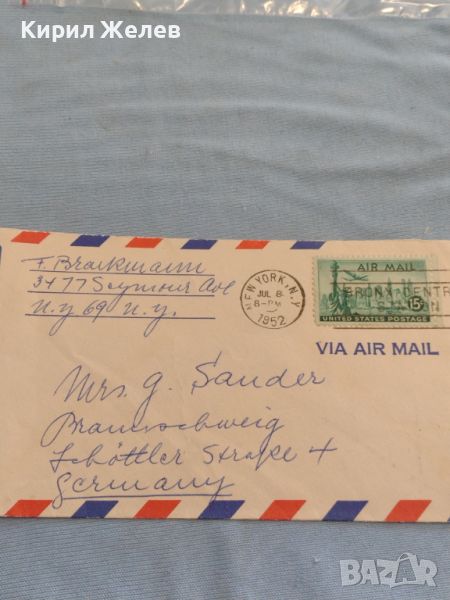 Кирил Желев
F. Brackmann
3477 Seymour Ave
N.Y 69 N.Y.
NEW YORK, N.Y.
JUL 8
8-PM
1952
AIR MAIL
BRONX CENTR
15¢
UNITED STATES POSTAGE
VIA AIR MAIL
Mrs. G. Sander
Braunschweig
Straße 4
Germany
BAZAR